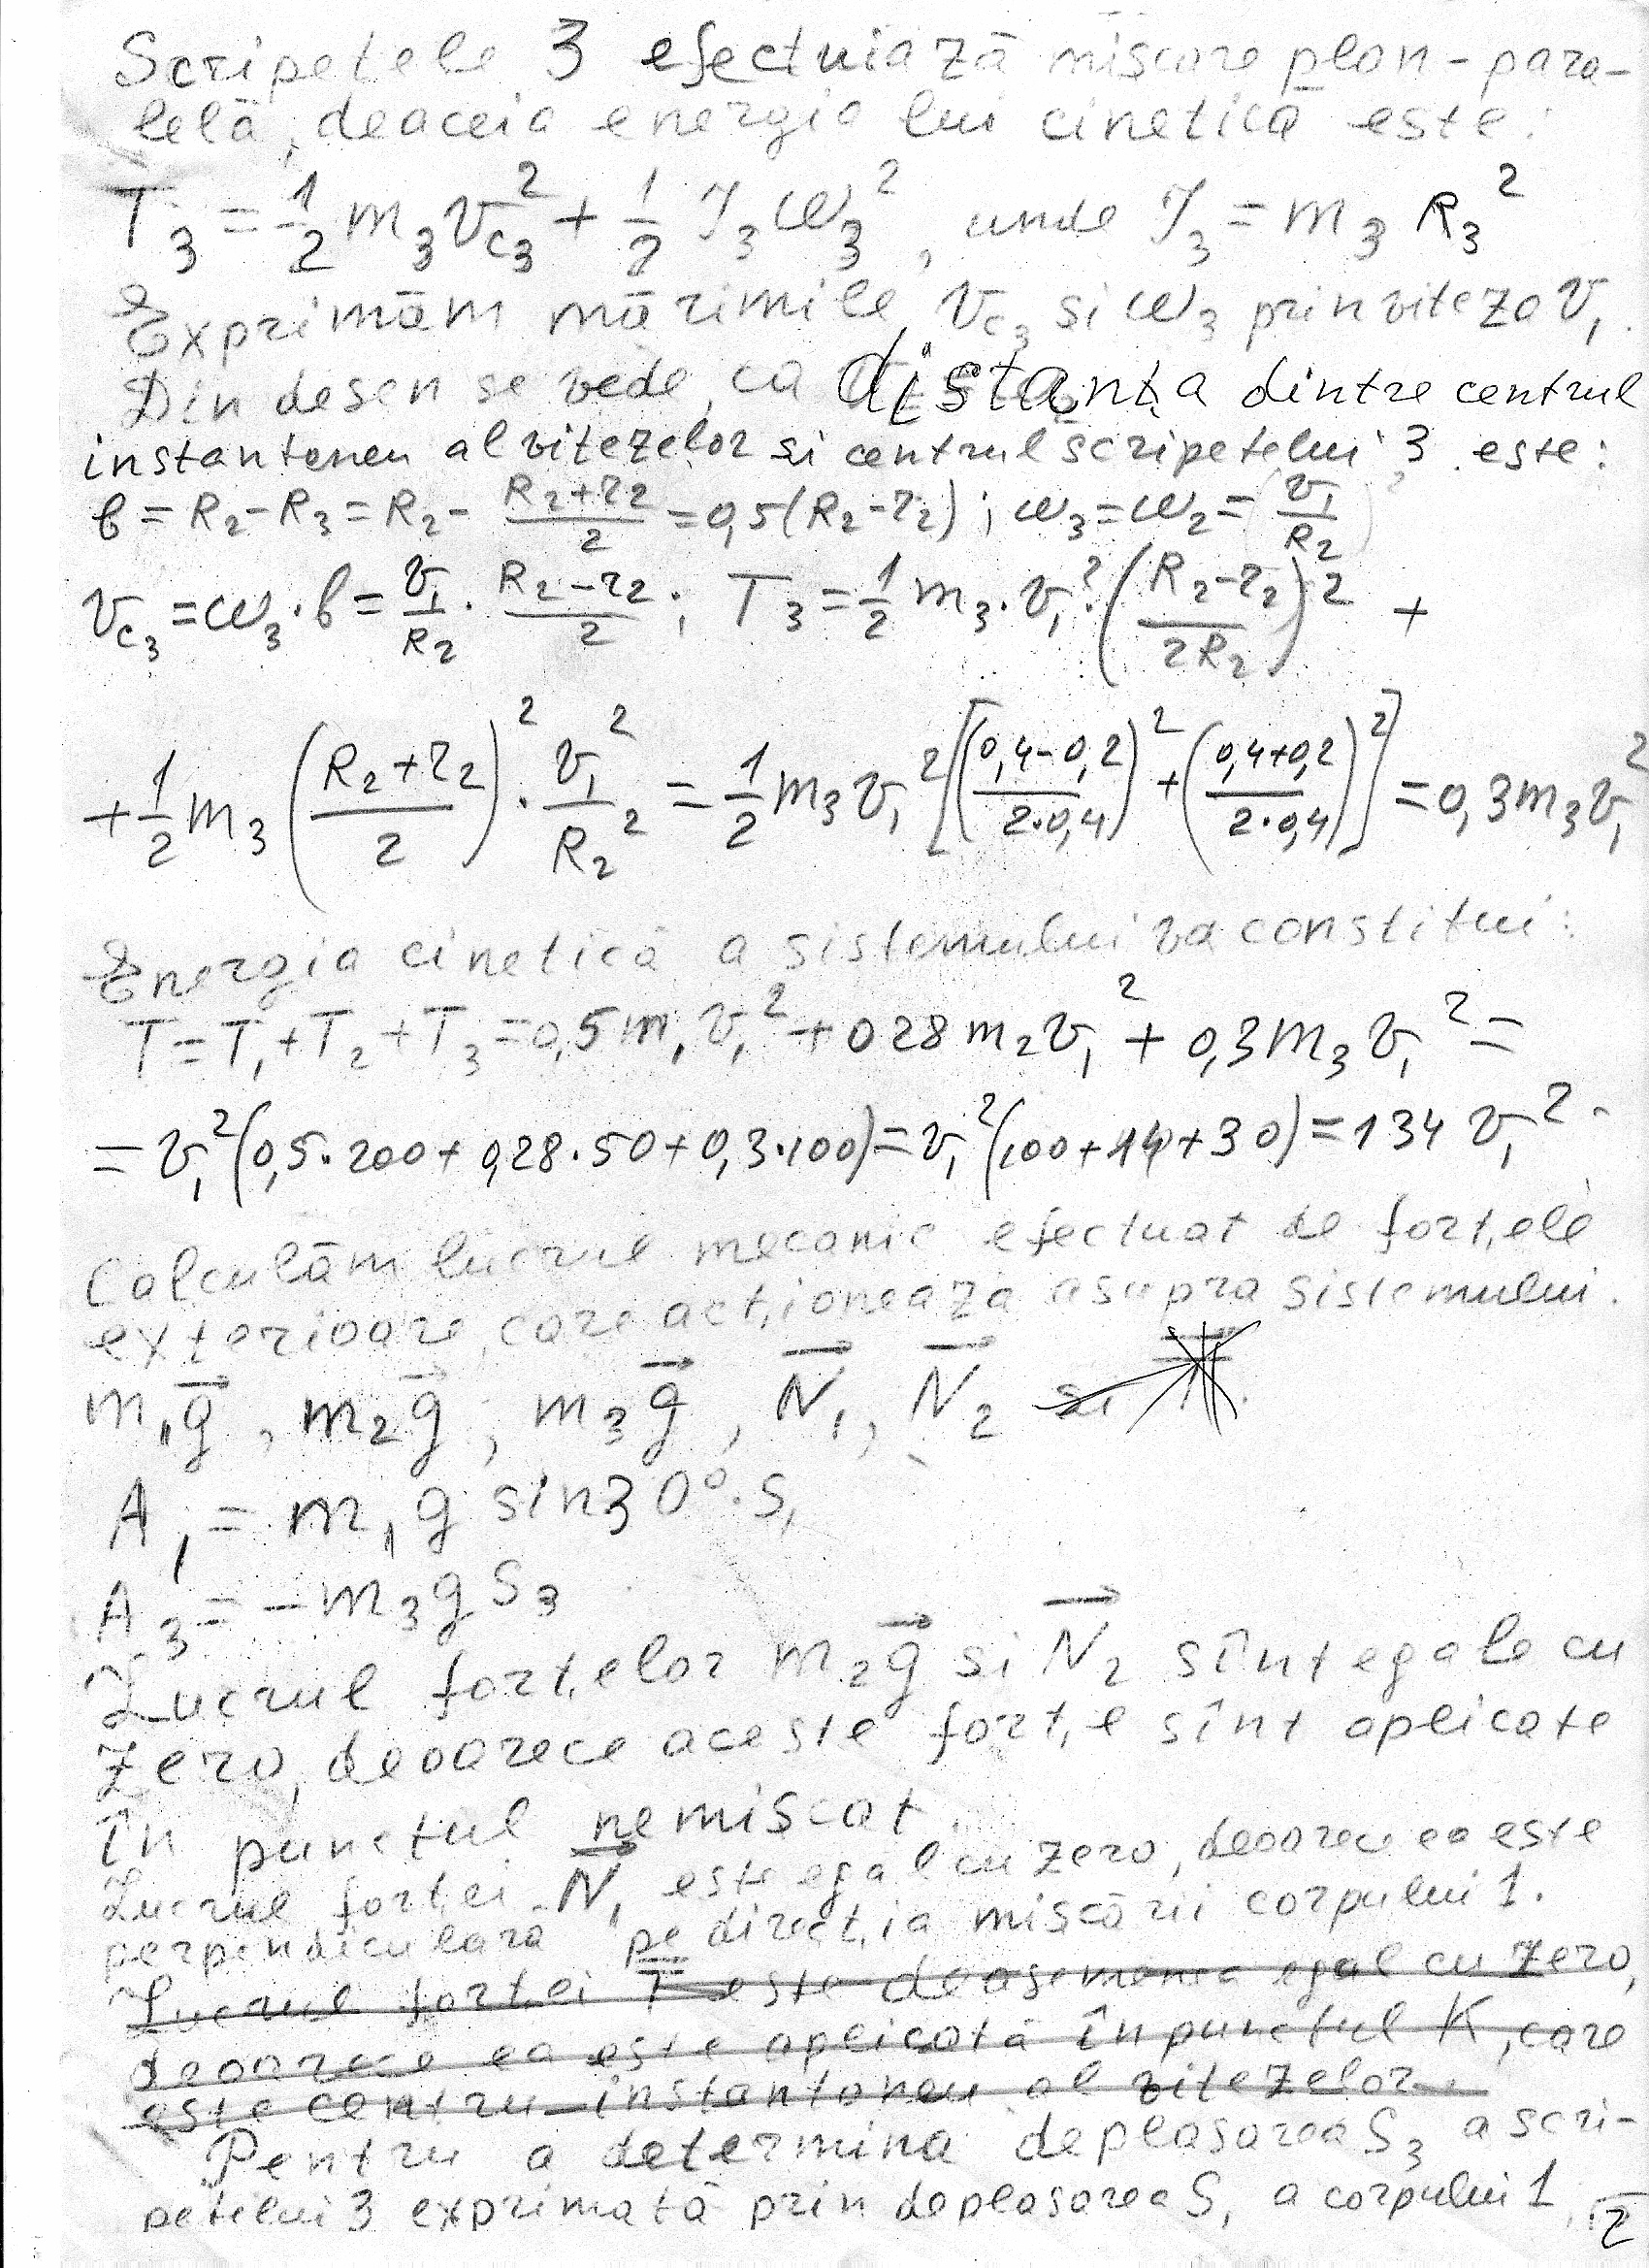 Scripetele 3 efectuiază mișcare plan-para-
lelă, deaceia energia lui cinetică este:
T₃ = 1/2 m₃ v_c₃² + 1/2 J₃ ω₃², unde J₃ = m₃ R₃²
Exprimăm mărimile v_c₃ si ω₃ prin viteza v₁.
Din desen se vede, ca distanța dintre centrul
instantaneu al vitezelor si centrul scripetelui 3 este:
b = R₂ - R₃ = R₂ - (R₂ + r₂)/2 = 0,5(R₂ - r₂); ω₃ = ω₂ = v₁/R₂
v_c₃ = ω₃ · b = v₁/R₂ · (R₂ - r₂)/2; T₃ = 1/2 m₃ · v₁² · ((R₂ - r₂)/2R₂)² +
+ 1/2 m₃ ((R₂ + r₂)/2)² · v₁²/R₂² = 1/2 m₃ v₁² [((0,4 - 0,2)/2·0,4)² + ((0,4 + 0,2)/2·0,4)²] = 0,3 m₃ v₁²
Energia cinetică a sistemului va constitui:
T = T₁ + T₂ + T₃ = 0,5 m₁ v₁² + 0,28 m₂ v₁² + 0,3 m₃ v₁² =
= v₁² (0,5 · 200 + 0,28 · 50 + 0,3 · 100) = v₁² (100 + 14 + 30) = 134 v₁².
Calculăm lucrul mecanic efectuat de forțele
exterioare, care acționează asupra sistemului.
m₁g⃗, m₂g⃗, m₃g⃗, N⃗₁, N⃗₂ si
A₁ = m₁ g sin30° · S₁
A₃ = - m₃ g S₃
Lucrul forțelor m₂g⃗ si N⃗₂ sînt egale cu
zero, deoarece aceste forțe sînt aplicate
în punctul nemiscat.
Lucrul forței N⃗₁ este egal cu zero, deoarece ea este
perpendiculară pe direcția miscării corpului 1.
Lucrul forței T este deasemenea egal cu zero,
deoarece ea este aplicată în punctul K, care
este centru instantaneu al vitezelor
Pentru a determina deplasarea S₃ a scri-
petelui 3 exprimată prin deplasarea S₁ a corpului 1,
2